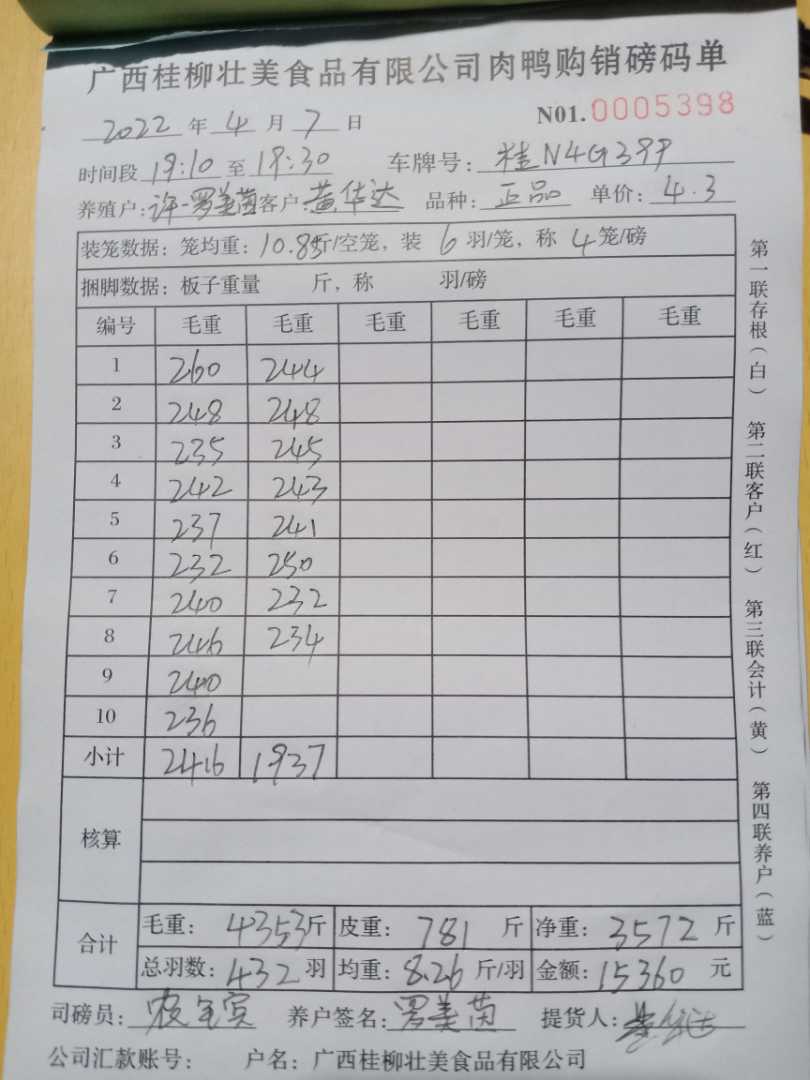 广西桂柳壮美食品有限公司肉鸭购销磅码单
2022 年 4 月 7 日 N01.0005398
时间段 19:10 至 19:30 车牌号: 桂N4G399
养殖户: 许-罗美茵 客户: 黄华达 品种: 正品 单价: 4.3
装笼数据: 笼均重: 10.85斤/空笼, 装 6 羽/笼, 称 4 笼/磅
捆脚数据: 板子重量 斤, 称 羽/磅
编号 毛重 毛重 毛重 毛重 毛重 毛重
1 260 244
2 248 248
3 235 245
4 242 243
5 237 241
6 232 250
7 240 232
8 246 234
9 240
10 236
小计 2416 1937
核算
合计 毛重: 4353斤 皮重: 781 斤 净重: 3572 斤
总羽数: 432 羽 均重: 8.26 斤/羽 金额: 15360 元
司磅员: 养户签名: 罗美茵 提货人:
公司汇款账号: 户名: 广西桂柳壮美食品有限公司
第一联存根(白) 第二联客户(红) 第三联会计(黄) 第四联养户(蓝)